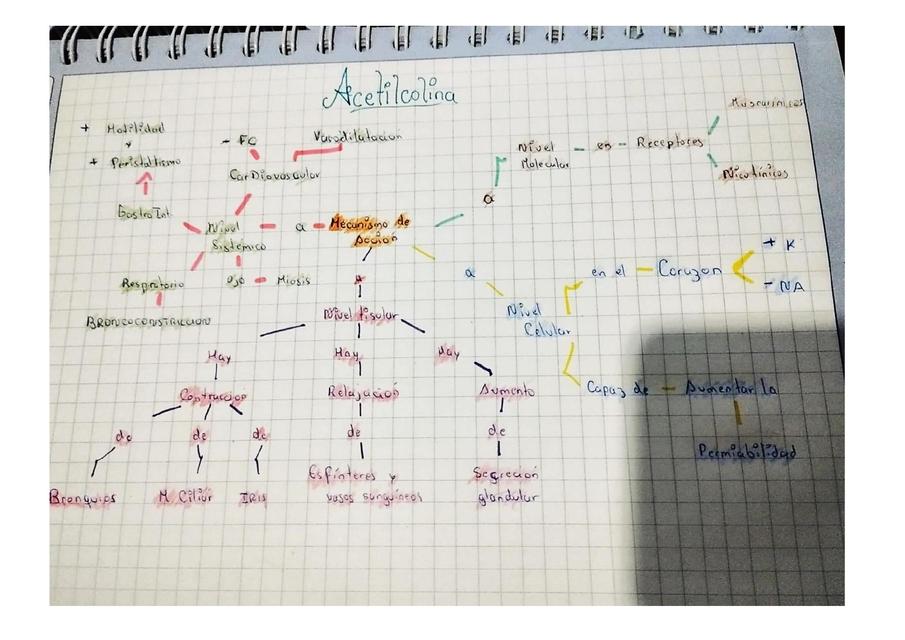 Acetilcolina
+ Motilidad
y
+ Peristaltismo
Gastro Int
- FC
Vasodilatacion
CarDiovascular
Nivel
Sistémico
a
Mecanismo de
Acción
Respiratorio
ojo
Miosis
BRONCOCONSTRICCION
a
Nivel
Molecular
en
Receptores
Muscarínicos
Nicotínicos
a
Nivel
Celular
en el
Corazon
+ K
- NA
Capaz de
Aumentar la
Permiabilidad
a
Nivel tisular
Hay
Contraccion
de
de
de
Bronquios
M Ciliar
IRIS
Hay
Relajación
de
Esfinteres y
vasos sanguíneos
Hay
Aumento
de
Secreción
glandular